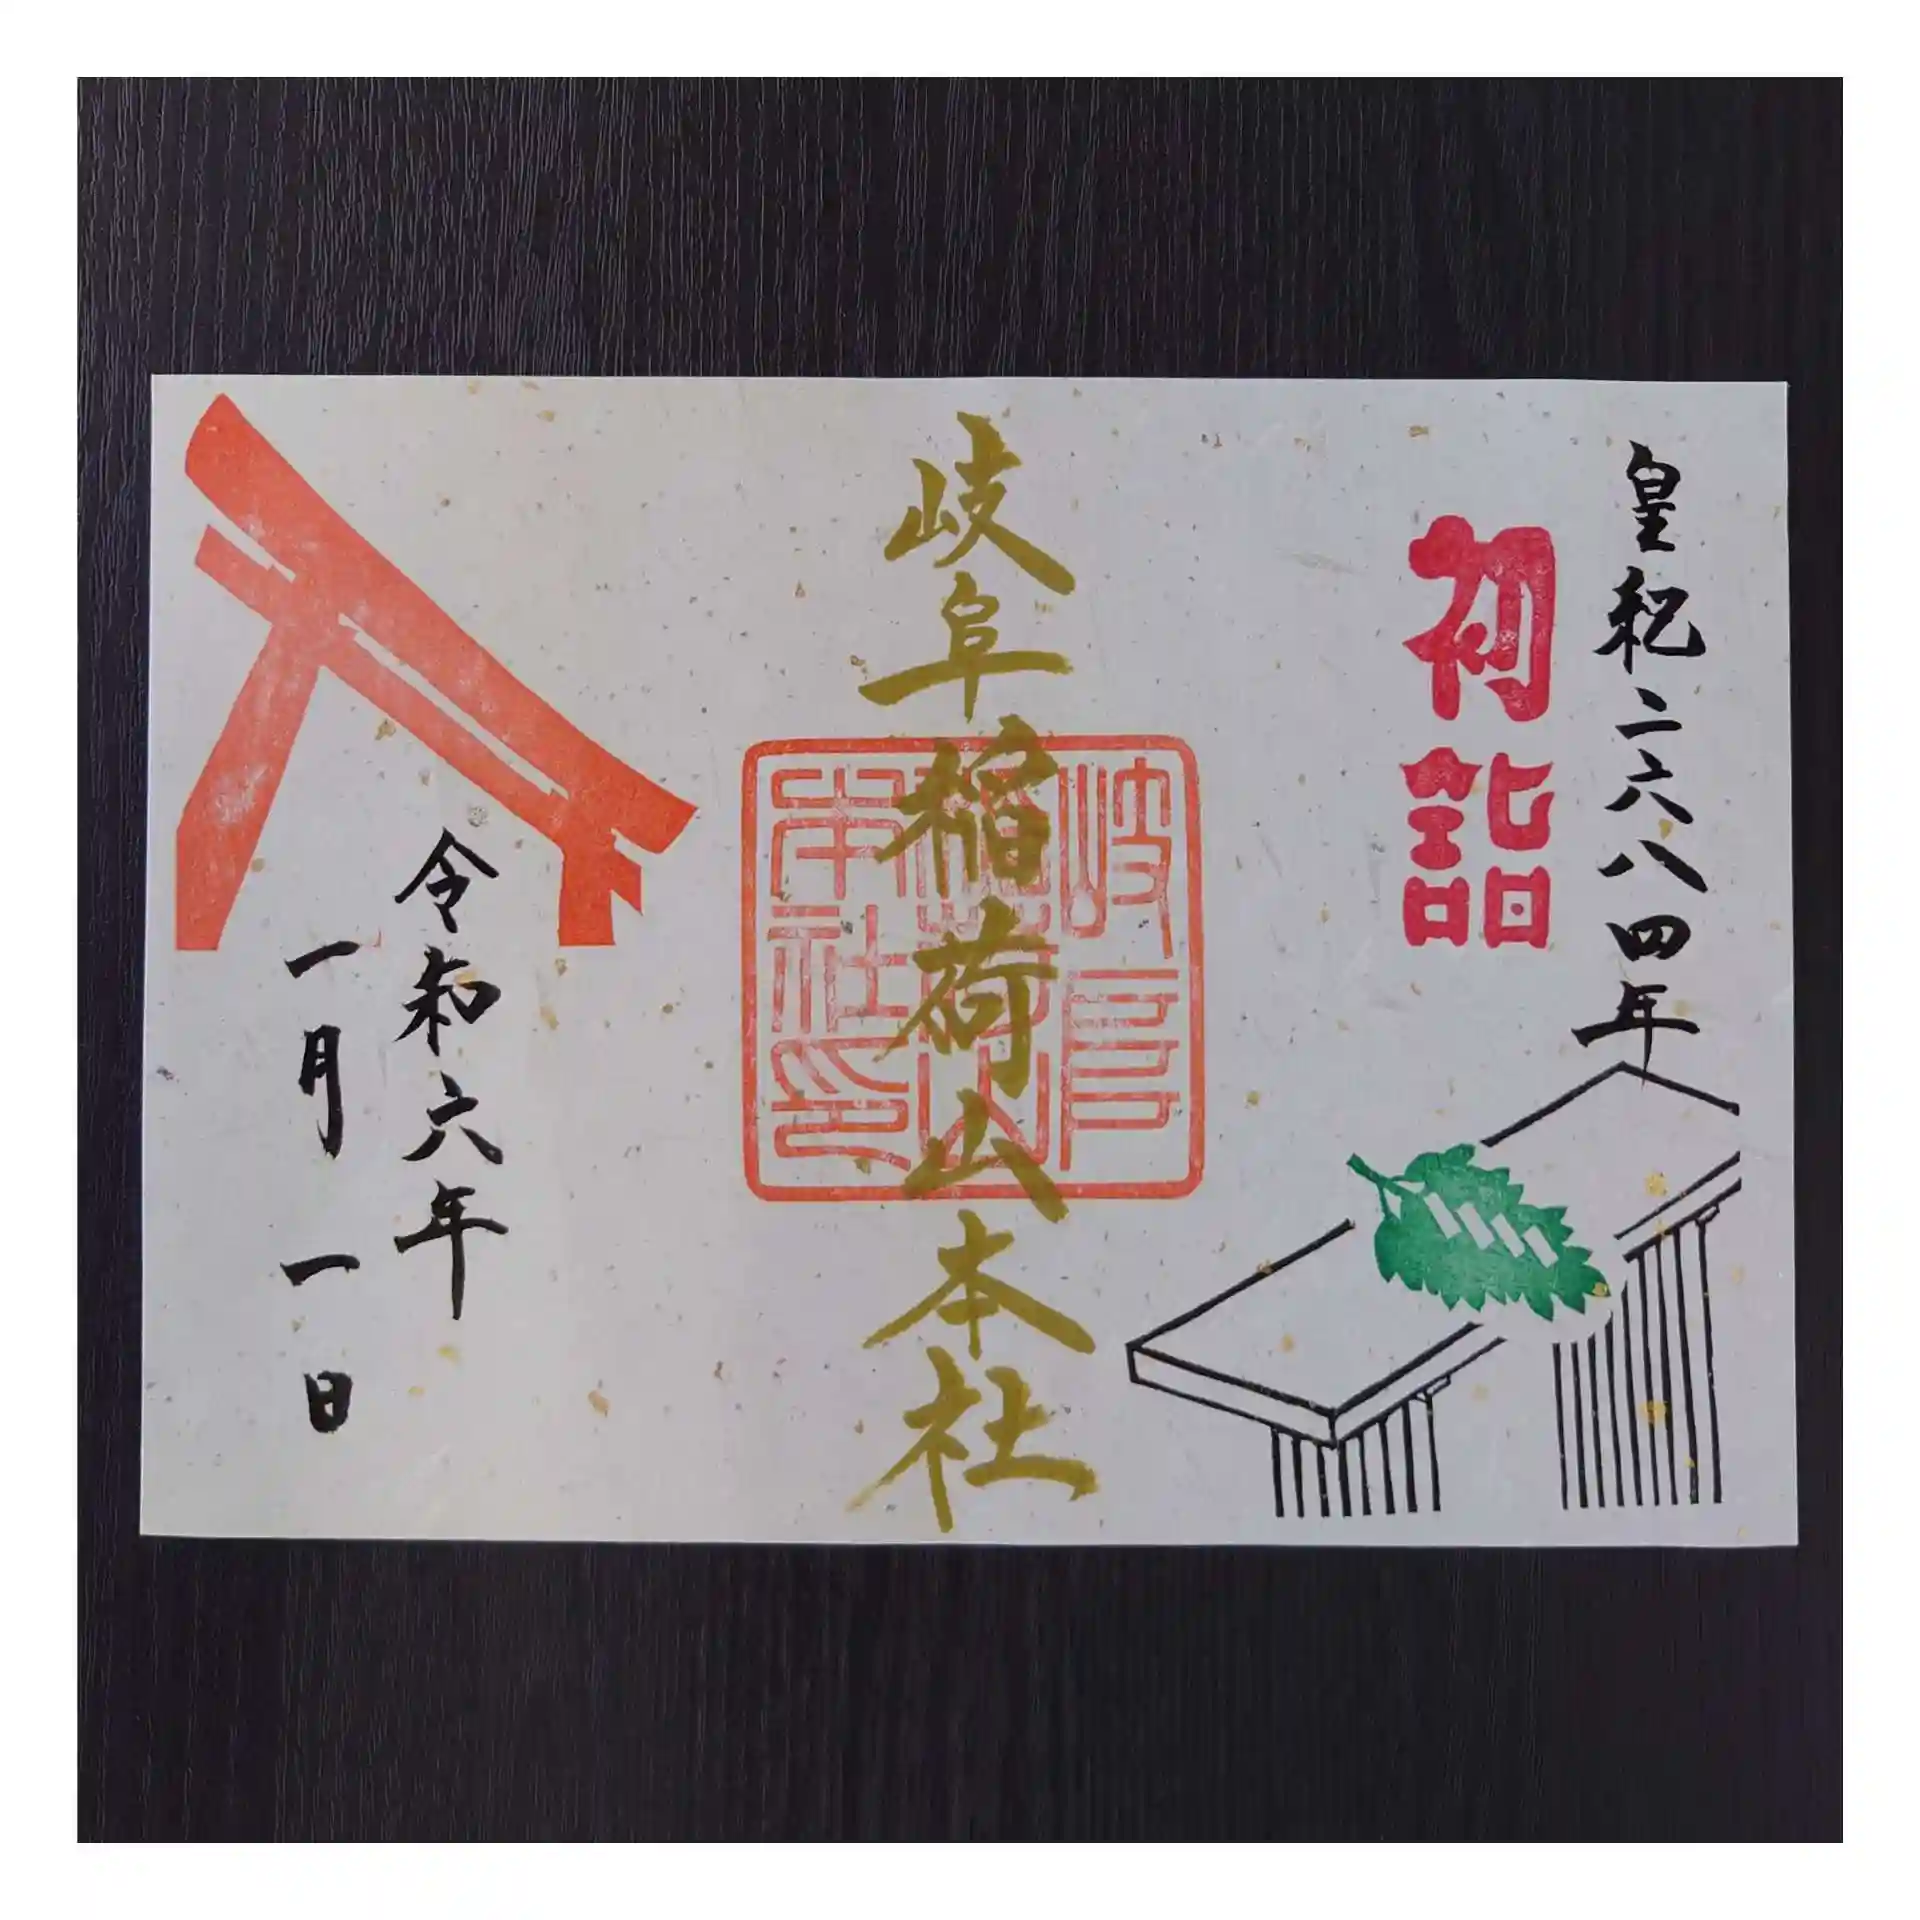 皇紀二六八四年
初詣
岐阜稲荷山本社
岐阜
稲荷山
本社印
令和六年
一月一日